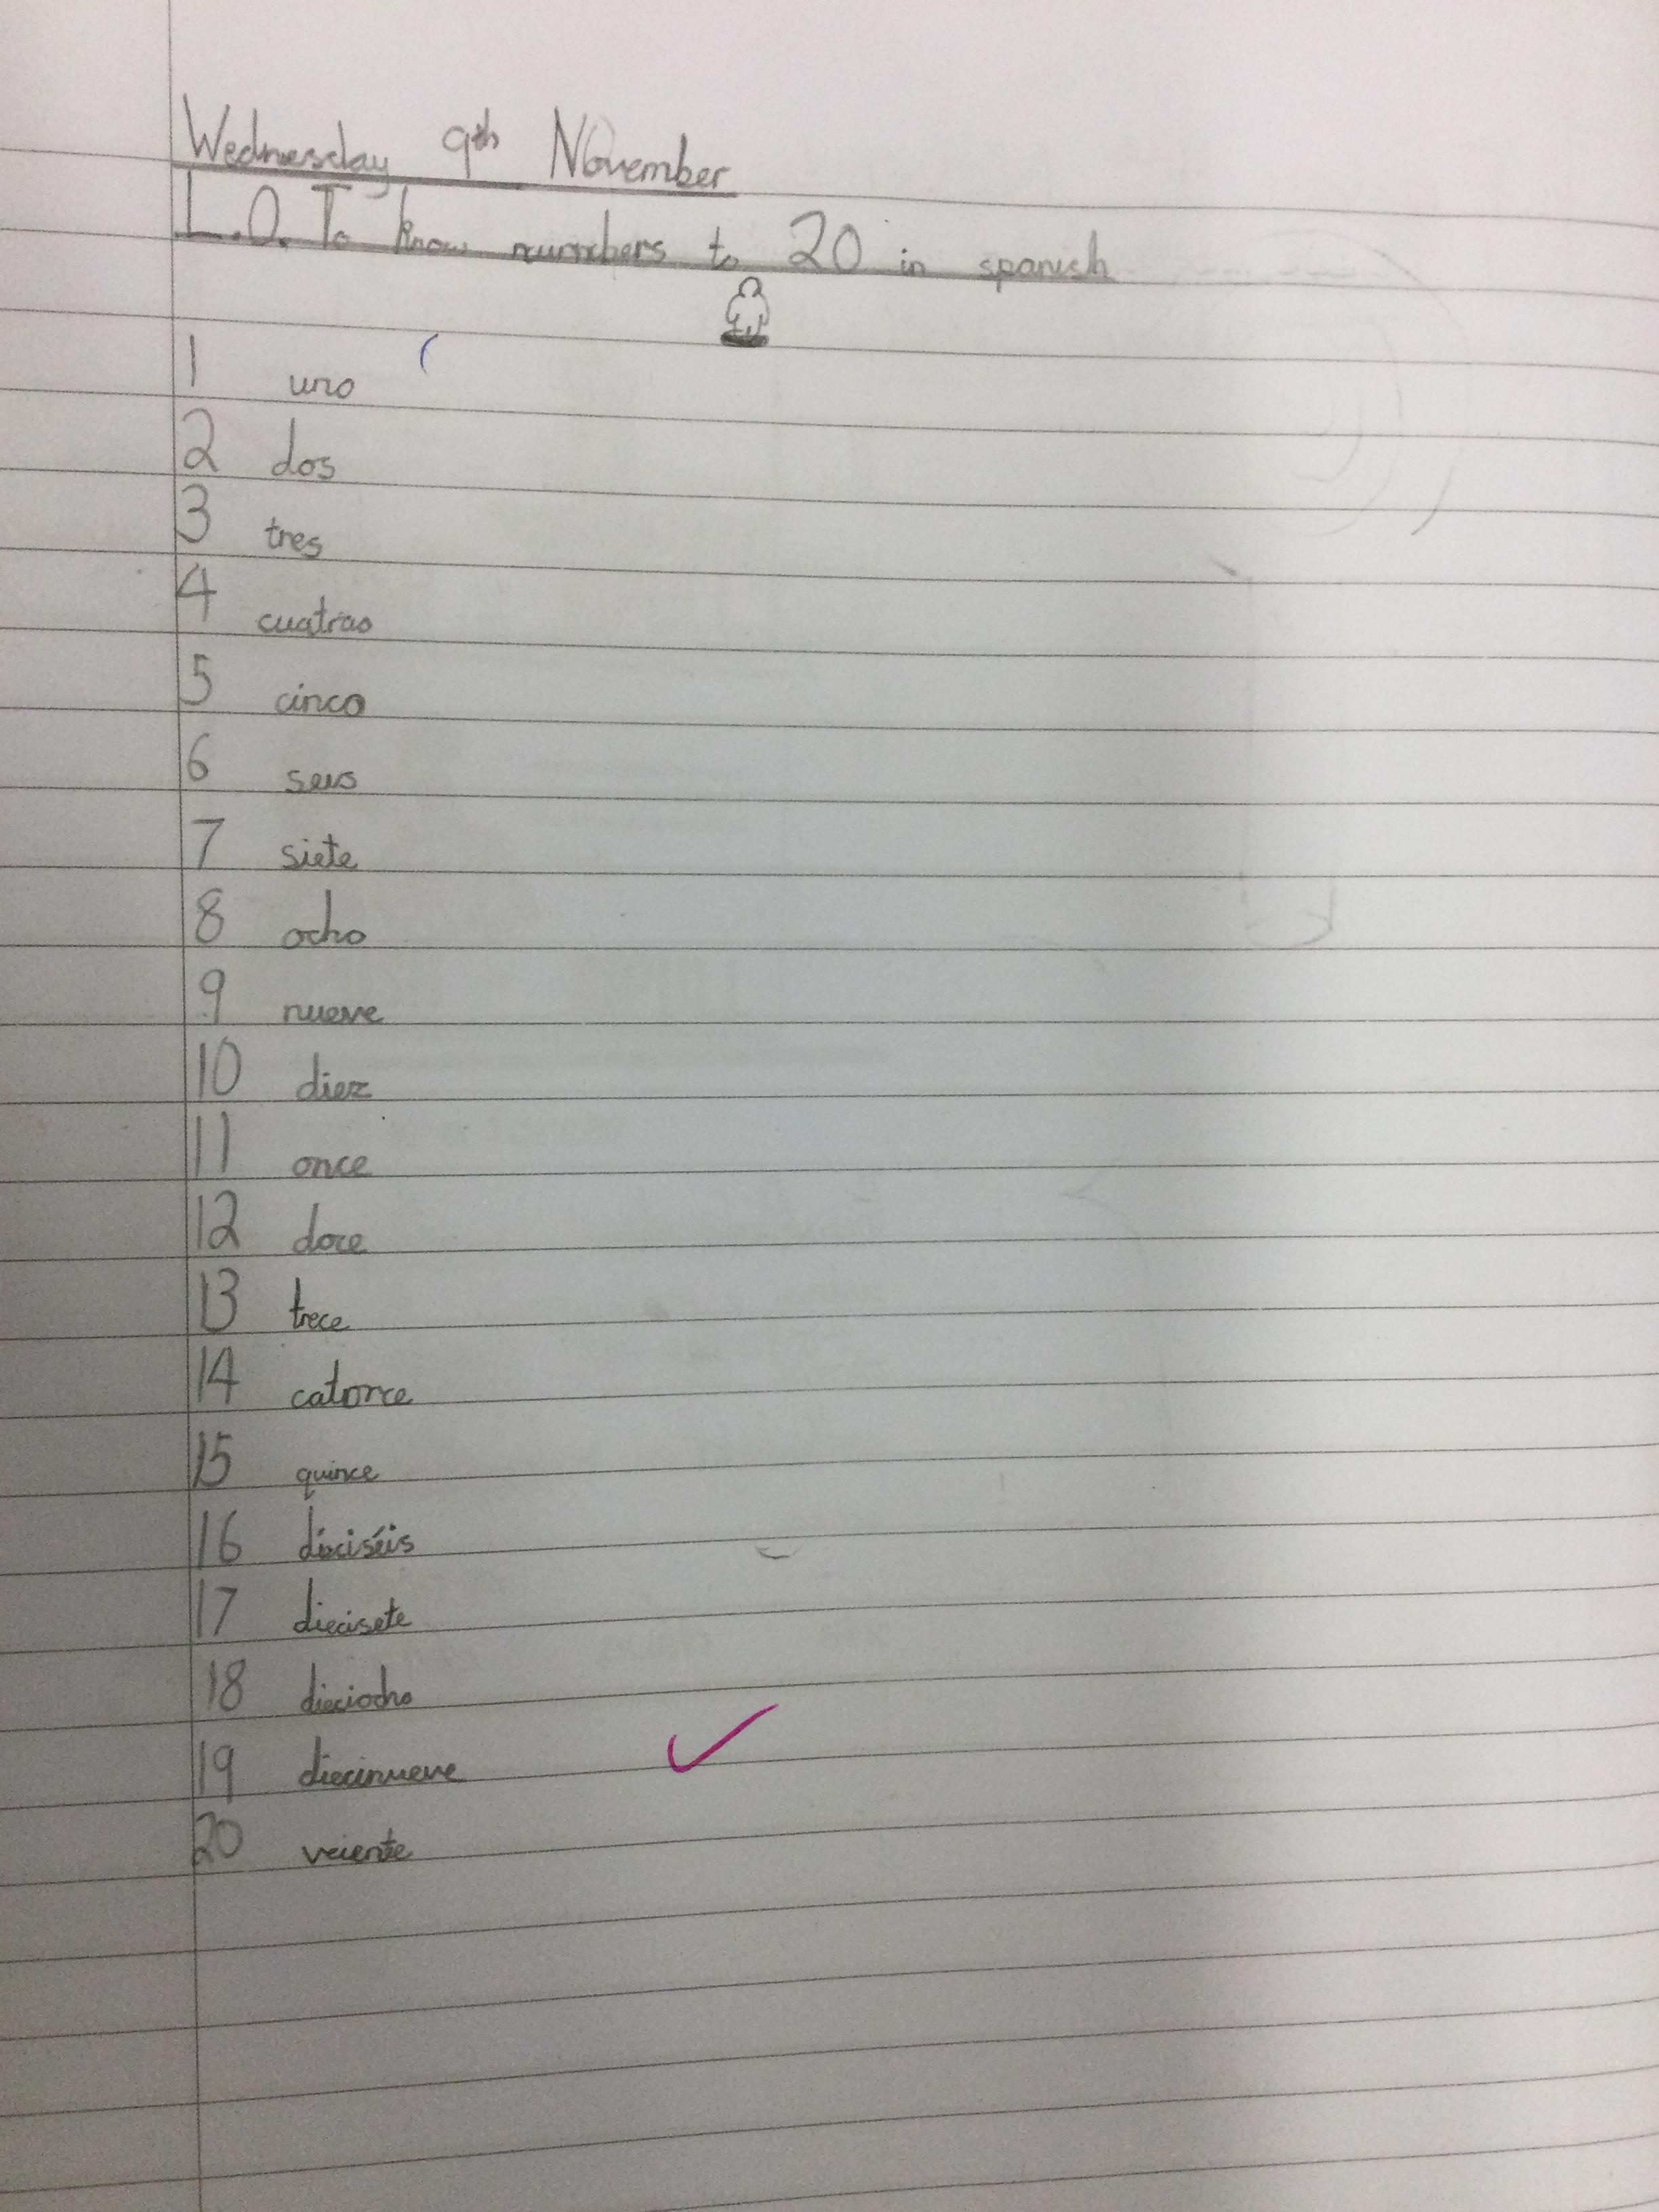 Wednesday 9th November
L.O. To know numbers to 20 in spanish
1 uno
2 dos
3 tres
4 cuatrao
5 cinco
6 seis
7 siete
8 ocho
9 nueve
10 diez
11 once
12 doce
13 trece
14 catorce
15 quince
16 dieciséis
17 diecisete
18 dieciocho
19 diecinueve
20 veiente